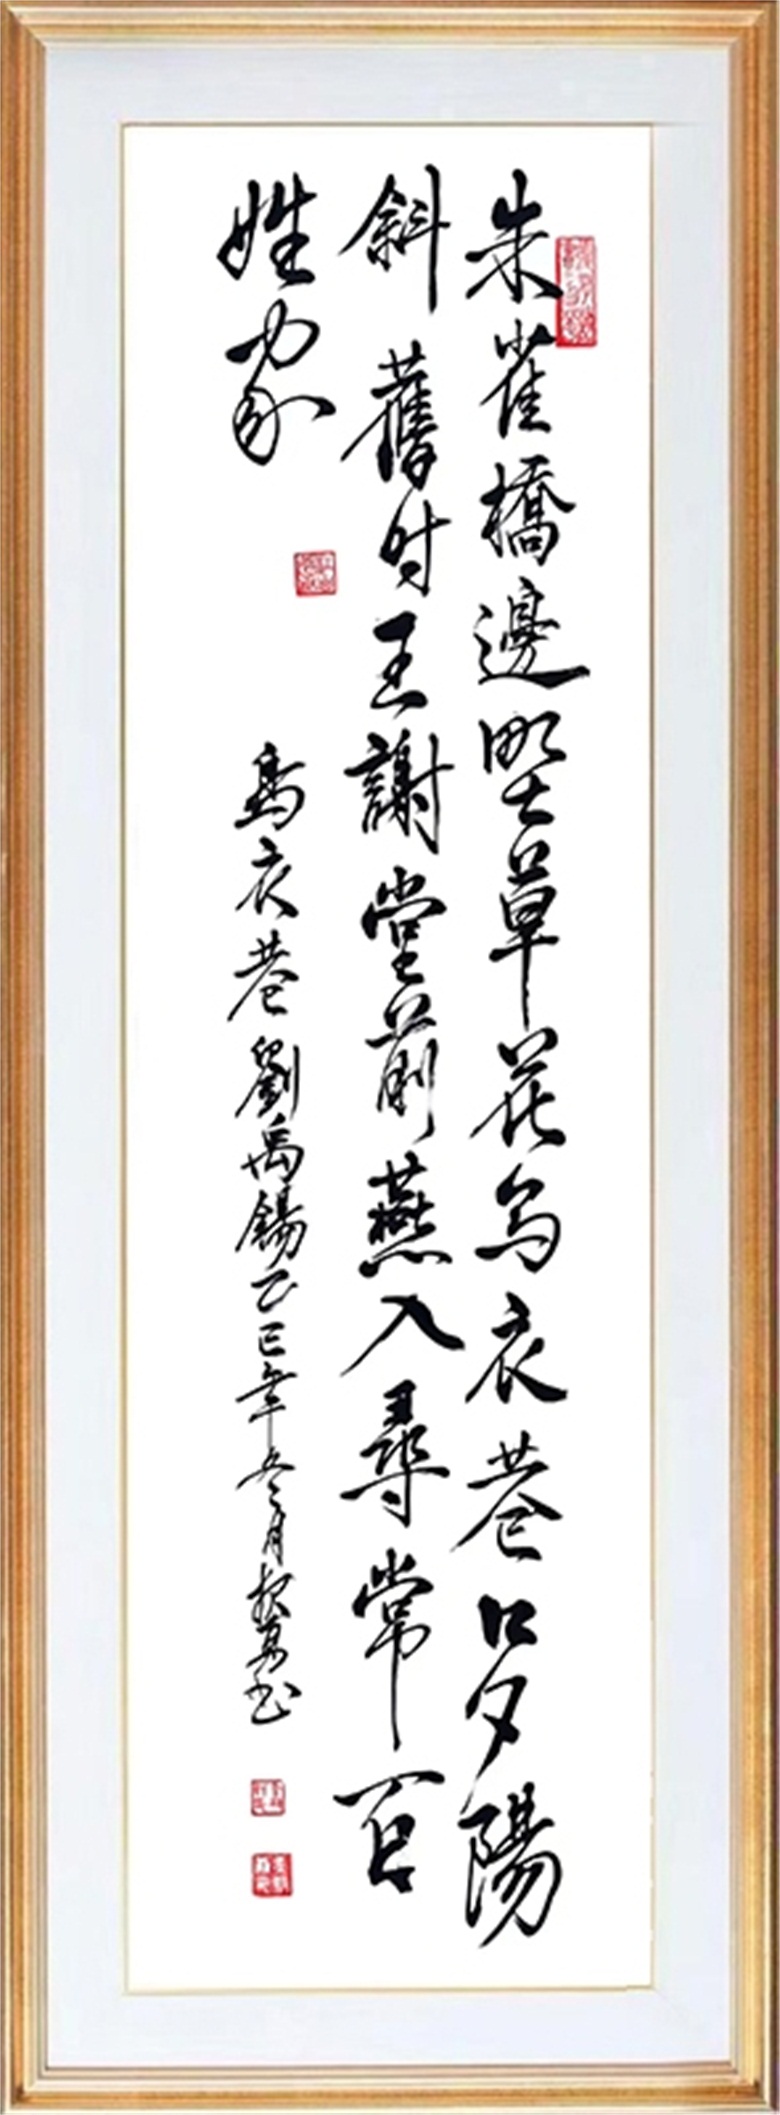 朱雀橋邊野草花乌衣巷口夕陽
斜舊时王謝堂前燕入尋常百
姓家
烏衣巷劉禹錫乙巳年冬月书